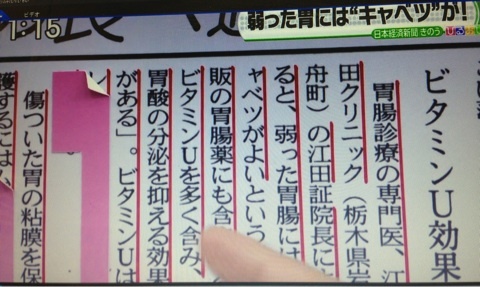 ビデオ
1:15
弱った胃には“キャベツ”が!
日本経済新聞 きのう
ビタミンU効果
胃腸診療の専門医、江
田クリニック（栃木県岩
舟町）の江田証院長に
ると、弱った胃腸には
ャベツがよいという
販の胃腸薬にも含
ビタミンUを多く含み、
胃酸の分泌を抑える効果
がある」。ビタミンUは
傷ついた胃の粘膜を保
護するには